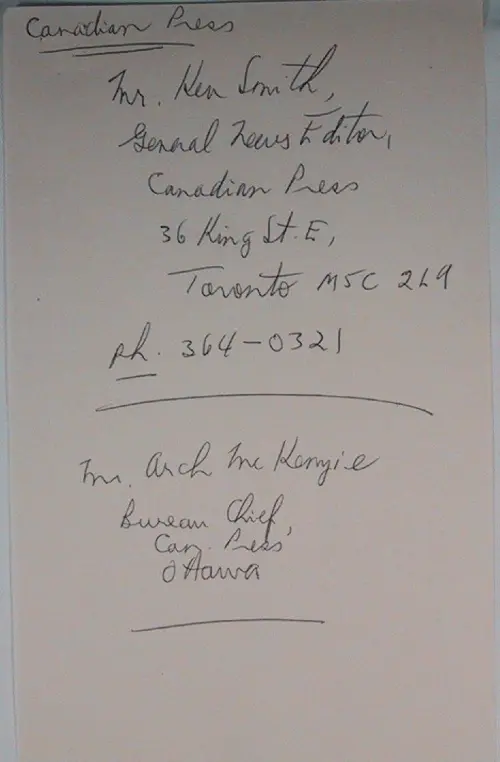 Canadian Press
Mr. Ken Smith,
General News Editor,
Canadian Press
36 King St. E,
Toronto M5C 2L9
ph. 364-0321
Mr. Arch McKenzie
Bureau Chief,
Can. Press
Ottawa